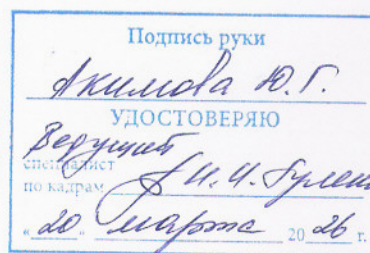 Подпись руки
Акимова Ю.Г.
УДОСТОВЕРЯЮ
Ведущий
специалист
по кадрам И.И.
"20" марта 2026 г.